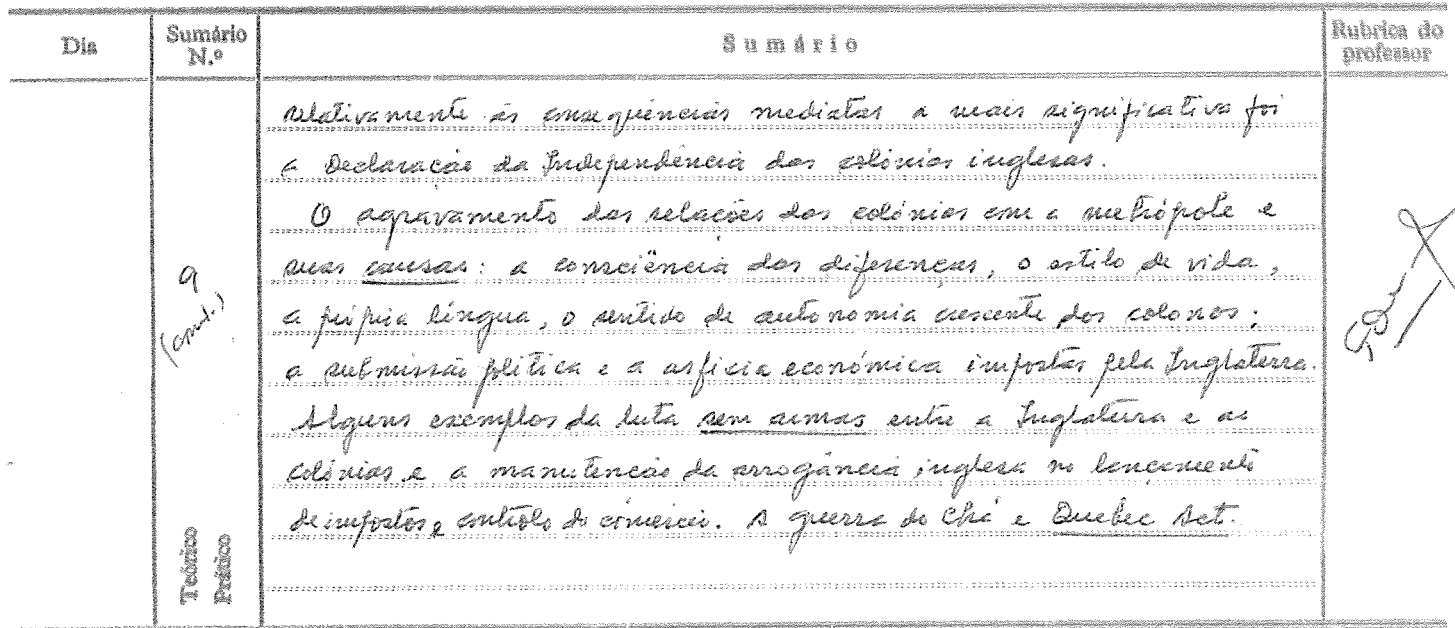 Dia
Sumário N.º
Sumário
Rubrica do professor
relativamente às consequências mediatas a mais significativa foi
a Declaração da Independência das colónias inglesas.
O agravamento das relações das colónias com a metrópole e
suas causas: a consciência das diferenças, o estilo de vida,
a própria língua, o sentido de autonomia crescente dos colonos;
a submissão política e a asfixia económica impostas pela Inglaterra.
Alguns exemplos da luta sem armas entre a Inglaterra e as
colónias e a manutenção da arrogância inglesa no lançamento
de impostos e controlo do comércio. A guerra do Chá e Quebec Act.
9
(cont.)
Teórico
Prático